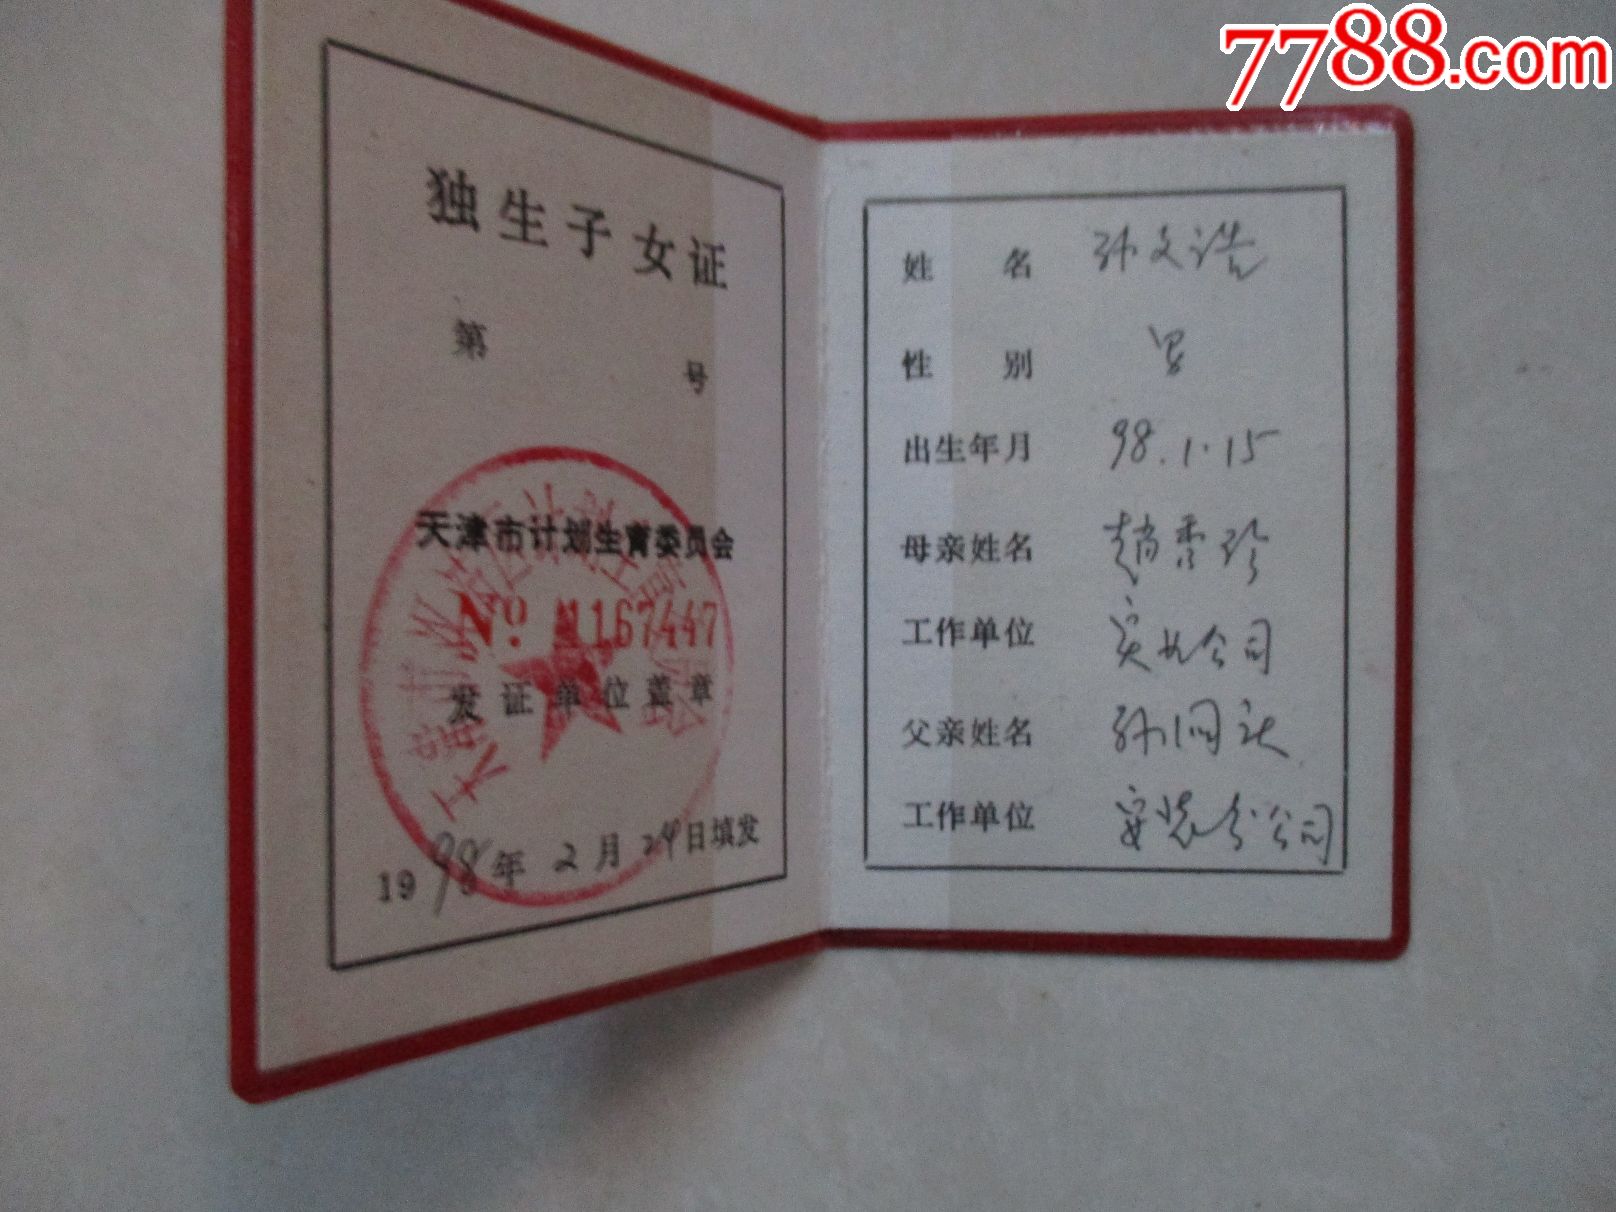 7788.com
独生子女证
第 号
天津市计划生育委员会
No. 1167447
发证单位盖章
1998年2月24日填发
姓名 孙文浩
性别 男
出生年月 98.1.15
母亲姓名 赵秀珍
工作单位 实业公司
父亲姓名 孙
工作单位 安装分公司